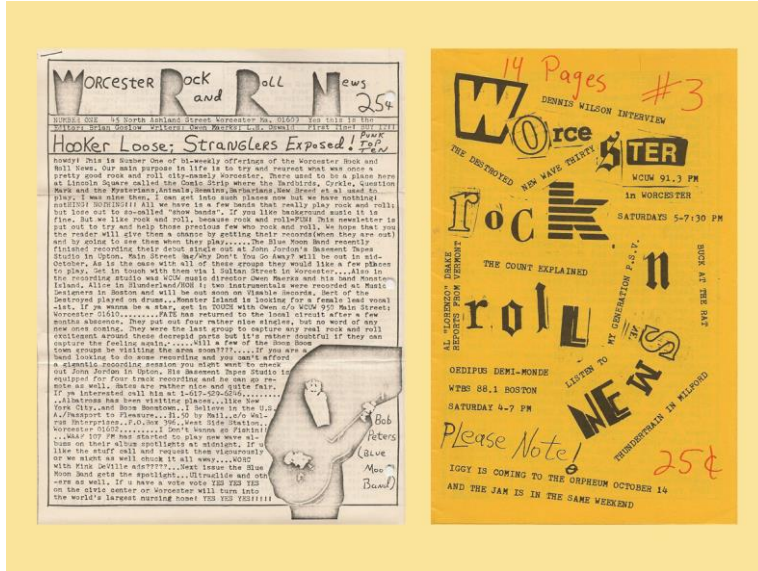 Worcester Rock and Roll News
25¢
NUMBER ONE 45 North Ashland Street Worcester Ma. 01609 Yes this is the
Editor: Brian Goslow Writers: Owen Maerks; L.M. Oswald First Time! BUY IT!!
Hooker Loose; Stranglers Exposed! PUNK TOP TEN
howdy! This is Number One of bi-weekly offerings of the Worcester Rock and
Roll News. Our main purpose in life is to try and resrect what was once a
pretty good rock and roll city-namely Worcester. There used to be a place here
at Lincoln Square called the Comic Strip where the Yardbirds, Cyrkle, Question
Mark and the Mysterians,Animals,Remains,Barbarians,New Breed et al used to
play. I was nine then, I can get into such places now but we have nothing!
notHING! NOTHING!!! All we have is a few bands that really play rock and roll;
but lose out to so-called "show bands". If you like background music it is
fine. But we like rock and roll, because rock and roll=FUN! This newsletter is
put out to try and help those precious few who rock and roll. We hope that you
the reader will give them a chance by getting their records(when they are out)
and by going to see them when they play......The Blue Moon Band recently
finished recording their debut single out at John Jordon's Basement Tapes
Studio in Upton. Main Street Rag/Why Don't You Go Away? will be out in mid-
October. As is the case with all of these groups they would like a few places
to play. Get in touch with them via 1 Sultan Street in Worcester....Also in
the recording studio was WCUW music director Owen Maerks and his band Monster
Island. Alice in Blunderland/HOH #; two instrumentals were recorded at Music
Designers in Boston and will be out soon on Visable Records. Bert of the
Destroyed played on drums...Monster Island is looking for a female lead vocal
-ist. If ya wanna be a star, get in TOUCH with Owen c/o WCUW 950 Main Street;
Worcester 01610........FATE has returned to the local circuit after a few
months abscence. They put out four rather nice singles, but no word of any
new ones coming. They were the last group to capture any real rock and roll
excitement around these decrepid parts but it's rather doubtful if they can
capture the feeling again......Will a few of the Boom Boom
town groups be visiting the area soon????....If you are a
band looking to do some recording and you can't afford
a gigantic recording session you might want to check
out John Jordon in Upton. His Basement Tapes Studio is
equipped for four track recording and he can go re-
mote as well. Rates are rather nice and quite fair.
If ya interested call him at 1-617-529-6246........
..Albatross has been visiting places...like New
York City..and Boom Boomtown...I Believe in the U.S.
A./Passport to Pleasure...$1.50 by Mail..c/o Wal-
rus Enterprises..P.O.Box 396..West Side Station..
Worcester 01602.........I Don't Wanna go Fishin!!
...WAAF 107 FM has started to play new wave al-
bums on their album spotlights at midnight. If u
like the stuff call and request them viguroursly
or we might as well chuck it all away....WORC
with Mink DeVille ads?????...Next issue the Blue
Moon Band gets the spotlight...Ultraglide and oth
-ers as well. If u have a vote vote YES YES YES
on the civic center or Worcester will turn into
the world's largest nursing home! YES YES YES!!!!!
Bob Peters
(Blue Moon Band)
14 Pages
#3
DENNIS WILSON INTERVIEW
Worcester
THE DESTROYED
NEW WAVE THIRTY
WCUW 91.3 FM
in WORCESTER
SATURDAYS 5-7:30 PM
rocK 'n
THE COUNT EXPLAINED
AL "LORENZO" DRAKE
REPORTS FROM VERMONT
roll
MY GENERATION P.S.V.
BUCK AT THE RAT
NEWS
OEDIPUS DEMI-MONDE
WTBS 88.1 BOSTON
SATURDAY 4-7 PM
LISTEN TO
NEWS
THUNDERTRAIN IN MILFORD
Please Note!
25¢
IGGY IS COMING TO THE ORPHEUM OCTOBER 14
AND THE JAM IS IN THE SAME WEEKEND